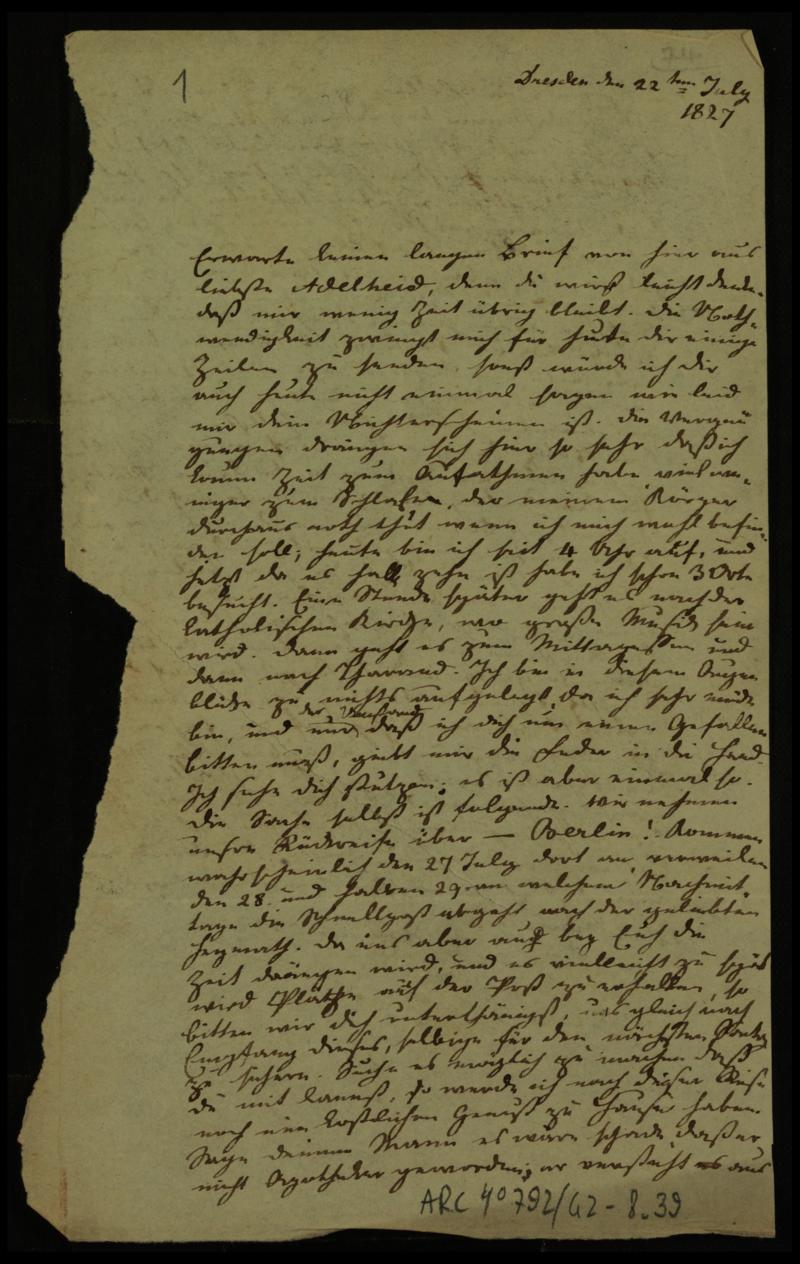 1
Dresden den 22ten July
1827
Erwarte keinen langen Brief von hier aus
liebste Adelheid, denn du wirst leicht denken
daß mir wenig Zeit übrig bleibt. Die Noth-
wendigkeit zwingt mich für heute dir einige
Zeilen zu senden, sonst würde ich dir
auch heute nicht einmal sagen wie leid
mir dein Nichterscheinen ist. Die Vergnü
gungen drängen sich hier so sehr daß ich
kaum Zeit zum Aufathmen habe, viel we-
niger zum Schlafen, der meinem Körper
durchaus noth thut wenn ich mich wohl befin-
den soll; heute bin ich seit 4 Uhr auf, und
jetzt da es halb zehn ist habe ich schon 3 Orte
besucht. Eine Stunde später geht es nach der
katholischen Kirche, wo große Musik sein
wird. Dann geht es zum Mittagessen und
dann nach Tharand. Ich bin in diesem Augen
blicke zu nichts aufgelegt, da ich sehr müde
bin, und nur der Umstand daß ich dich um einen Gefallen
bitten muß, giebt mir die Feder in die Hand.
Ich sehe dich stutzen; es ist aber einmal so.
Die Sache selbst ist folgende. Wir nehmen
unsre Rückreise über — Berlin! Kommen
wahrscheinlich den 27 July dort an, verweilen
den 28. und halben 29. an welchem Nachmit-
tage die Schnellpost abgeht nach der geliebten
Heymath. Da uns aber auch bey Euch die
Zeit drängen wird, und es vielleicht zu spät
wird Plätze auf der Post zu erhalten, so
bitten wir dich unterthänigst, uns gleich nach
Empfang dieses, selbige für den nächsten Sonntag
zu sichern. Suche es möglich zu machen daß
du mit kannst, so werde ich nach dieser Reise
noch einen köstlichen Genuß zu Hause haben.
Sage deinem Mann es wäre schade daß er
nicht Apotheker geworden; er versteht es aus
ARC 4° 792/G2-8.39